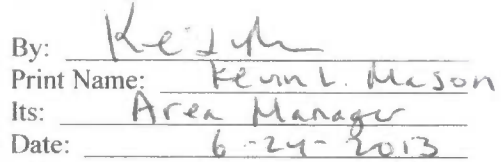 By:
Print Name: Kevin L. Mason
Its: Area Manager
Date: 6-24-2013